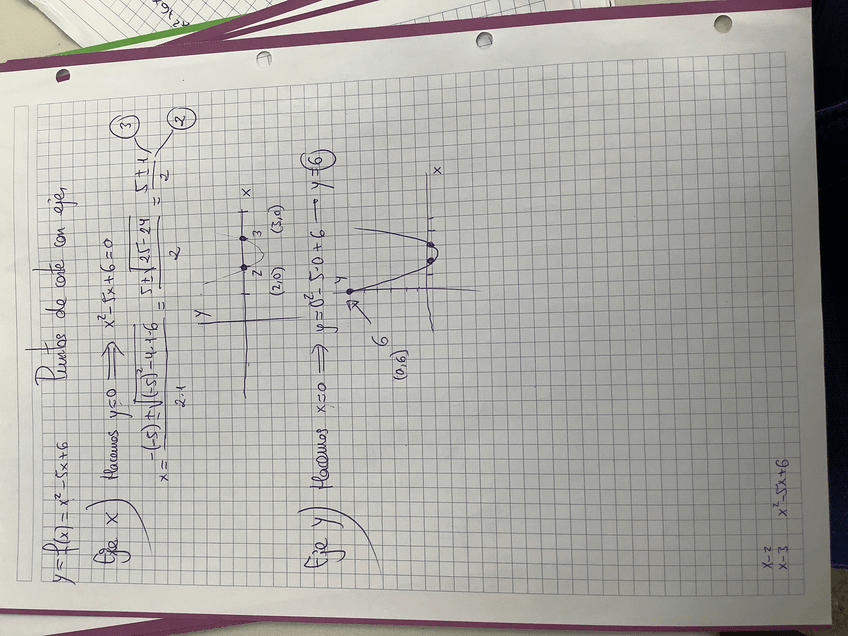 y = f(x) = x² - 5x + 6 Puntos de corte con ejes
Eje X) Hacemos y=0 ⟹ x² - 5x + 6 = 0
x = -(-5) ± √(-5)² - 4·1·6 / 2·1 = 5 ± √25 - 24 / 2 = 5 ± 1 / 2
3
2
y
x
2 3
(2,0) (3,0)
Eje y) Hacemos x=0 ⟹ y = 0² - 5·0 + 6 → y = 6
y
x
6
(0,6)
x-2
x-3 x² - 5x + 6